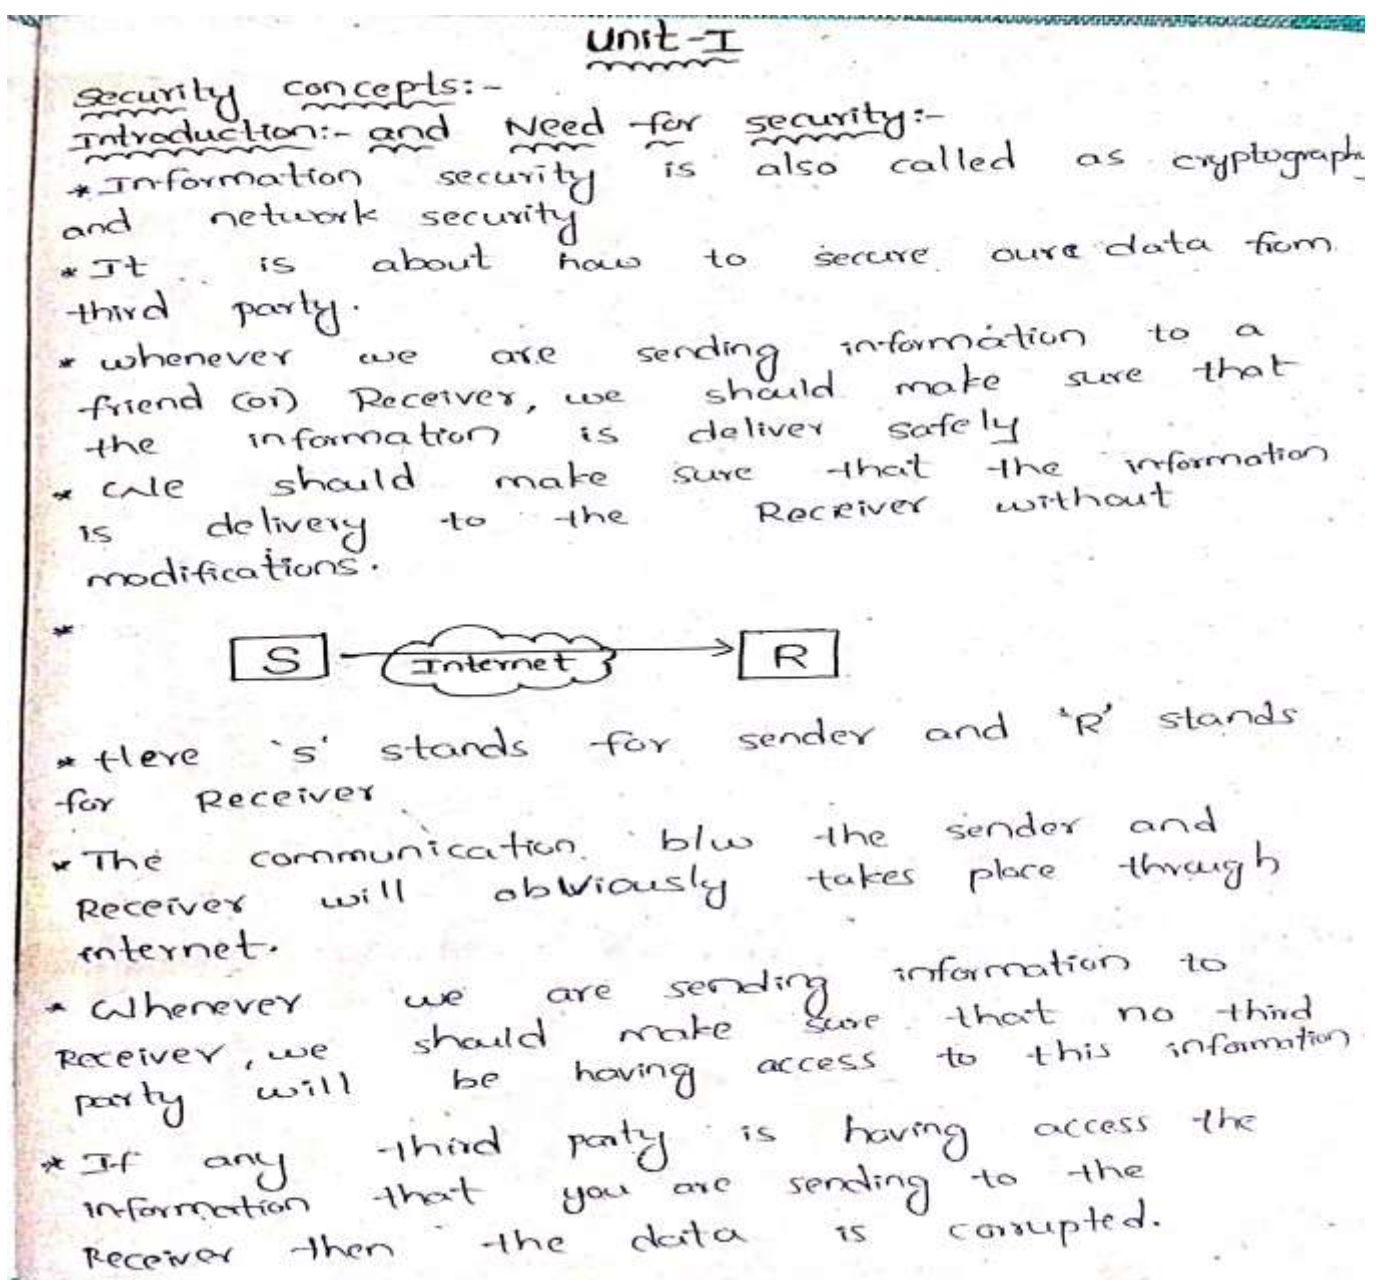 Unit-I
Security concepts:-
Introduction:- and Need for security:-
* Information security is also called as cryptography
and network security
* It is about how to secure oure data from
third party.
* whenever we are sending information to a
friend (or) Receiver, we should make sure that
the information is deliver safely
* We should make sure that the information
is delivery to the Receiver without
modifications.
*
S Internet R
* Here 's' stands for sender and 'R' stands
for Receiver
* The communication b/w the sender and
Receiver will obviously takes place through
internet.
* Whenever we are sending information to
Receiver, we should make sure that no third
party will be having access to this information
* If any third party is having access the
information that you are sending to the
Receiver then the data is corrupted.